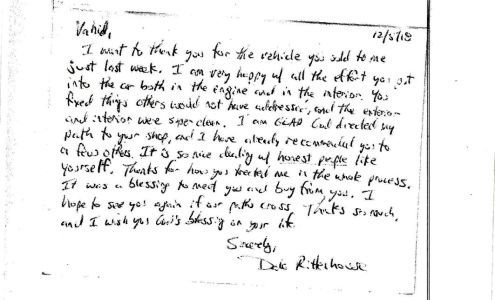 12/5/18
Vahid,
I want to thank you for the vehicle you sold to me
just last week. I am very happy w/ all the effort you put
into the car both in the engine and in the interior. You
fixed things others would not have addressed, and the exterior
and interior were super clean. I am GLAD God directed my
path to your shop, and I have already recommended you to
a few others. It is so nice dealing w/ honest people like
yourself. Thanks for how you treated me in the whole process.
It was a blessing to meet you and buy from you. I
hope to see you again if our paths cross. Thanks so much,
and I wish you God's blessing on your life.
Sincerely,
Dale Rittenhouse